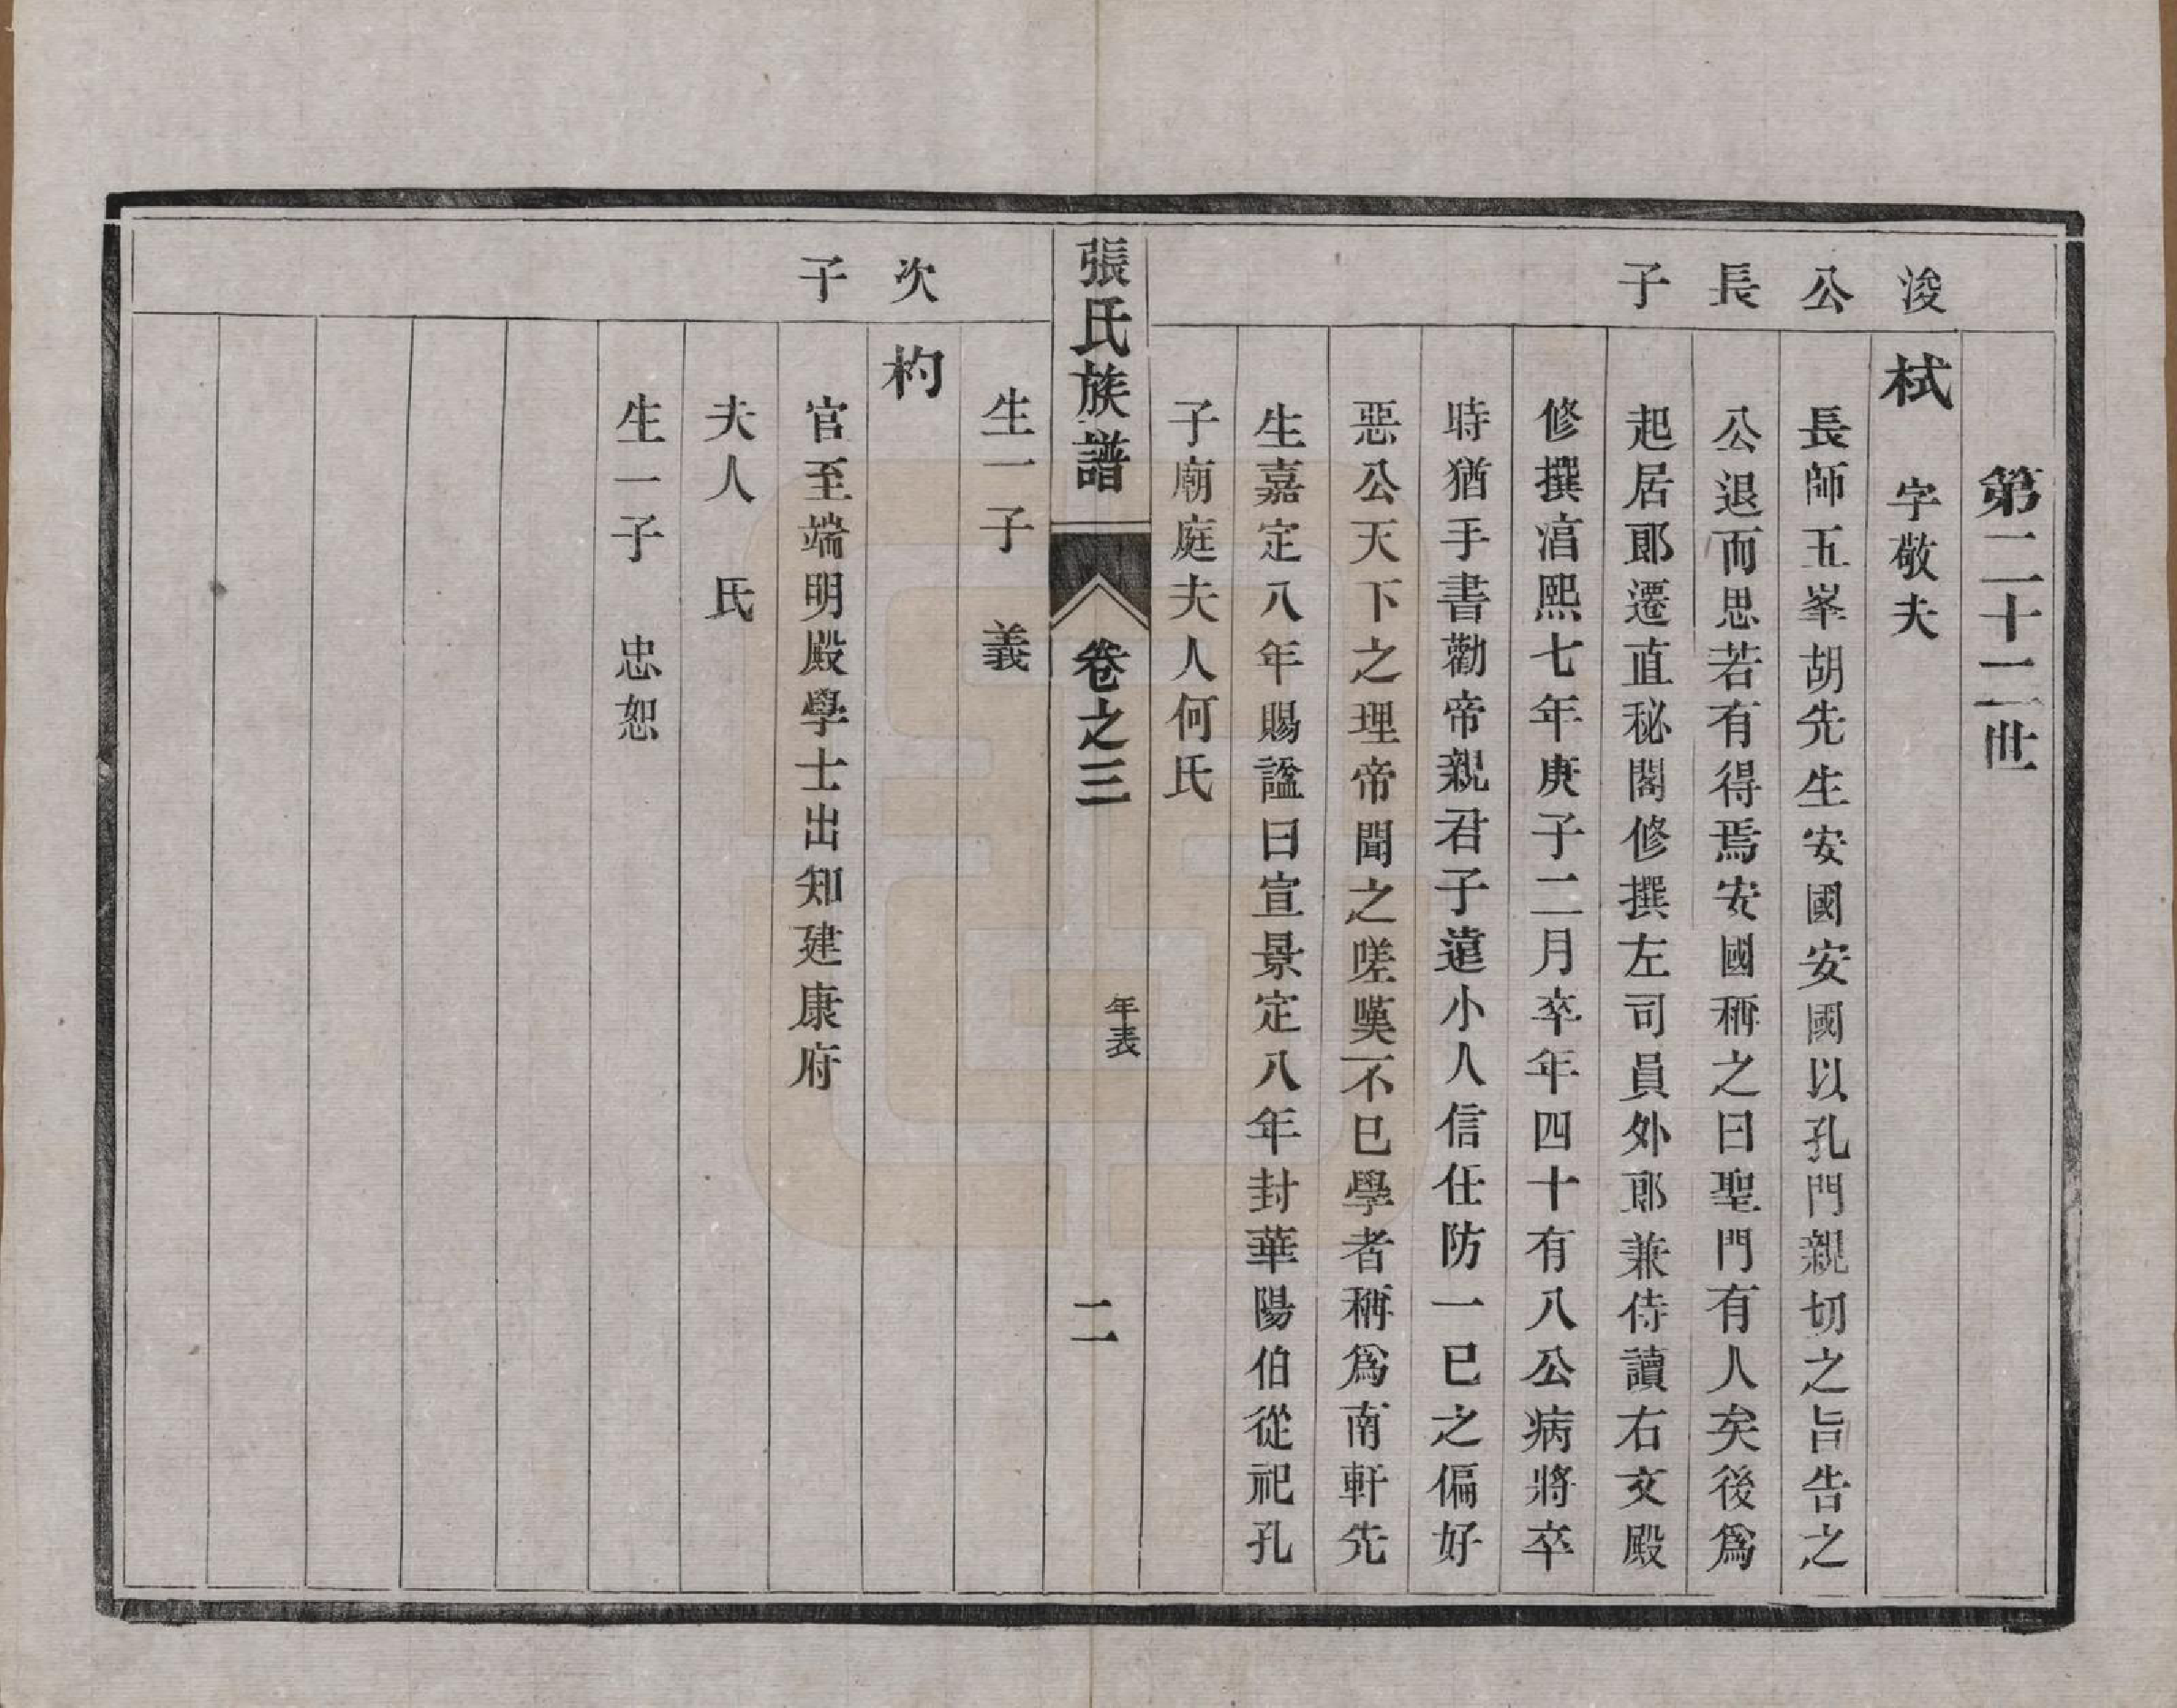 第二十二世
浚公長子
栻 字敬夫
長師五峯胡先生安國安國以孔門親切之旨告之
公退而思若有得焉安國稱之曰聖門有人矣後爲
起居郎遷直秘閣修撰左司員外郎兼侍讀右文殿
修撰淳熙七年庚子二月卒年四十有八公病將卒
時猶手書勸帝親君子遠小人信任防一已之偏好
惡公天下之理帝聞之嗟嘆不已學者稱爲南軒先
生嘉定八年賜諡曰宣景定八年封華陽伯從祀孔
子廟庭夫人何氏
張氏族譜 卷之三 年表 二
生一子 義
次子
杓
官至端明殿學士出知建康府
夫人 氏
生一子 忠恕